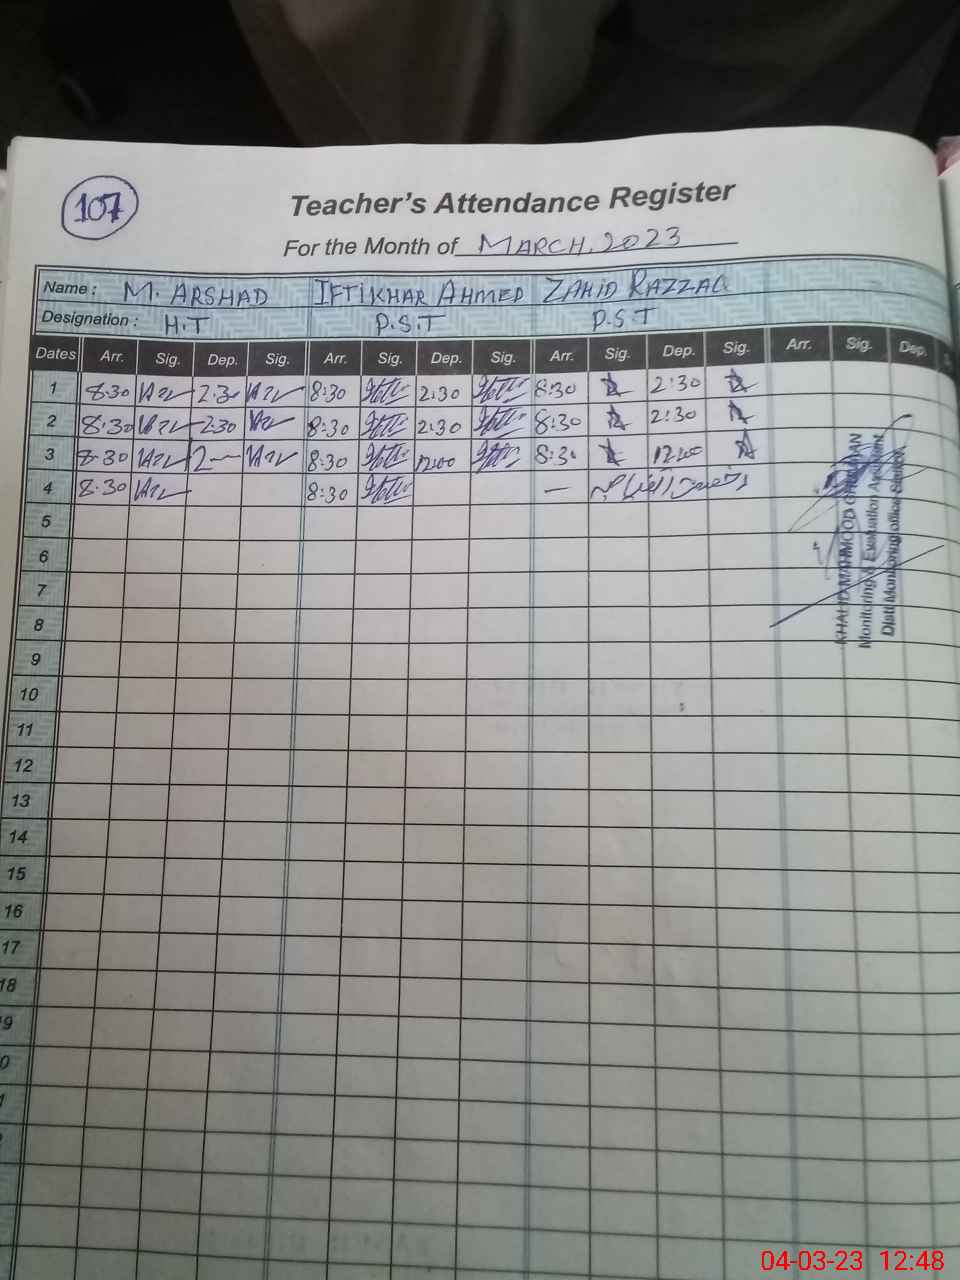 107
Teacher's Attendance Register
For the Month of MARCH, 2023
Name : M. ARSHAD IFTIKHAR AHMED ZAHID RAZZAQ
Designation : H.T P.S.T P.S.T
Dates Arr. Sig. Dep. Sig. Arr. Sig. Dep. Sig. Arr. Sig. Dep. Sig. Arr. Sig. Dep. S
1 8:30 2:30 8:30 2:30 8:30 2:30
2 8:30 2:30 8:30 2:30 8:30 2:30
3 8:30 8:30 12:00 8:30 12:00
4 8:30 8:30 —
5
6
7
8
9
10
11
12
13
14
15
16
17
18
9
0
KHALID MAHMOOD
Monitoring & Evaluation Assistant
Distt Monitoring office
04-03-23 12:48